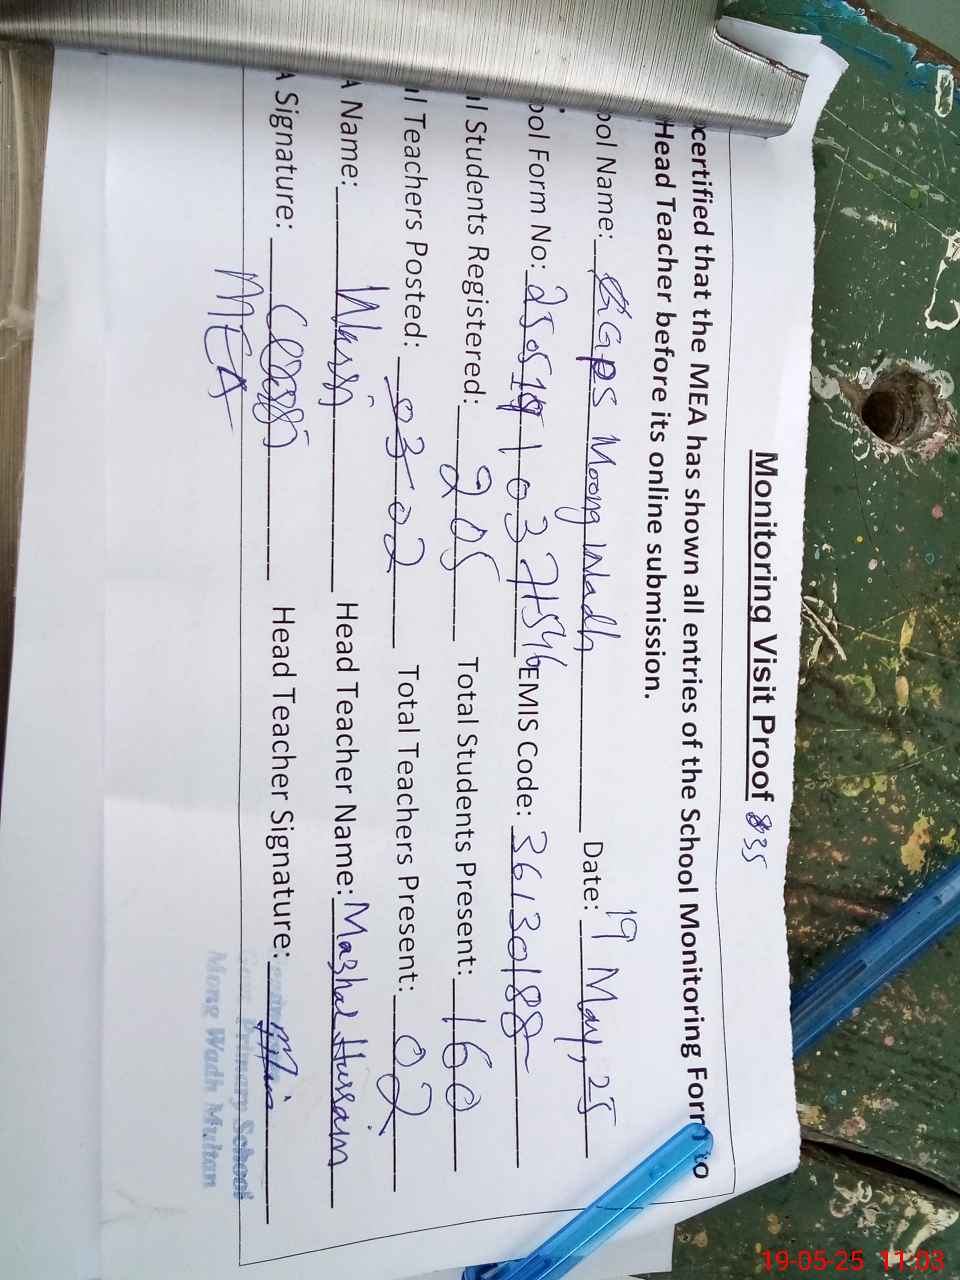 Monitoring Visit Proof 835
certified that the MEA has shown all entries of the School Monitoring Form to
Head Teacher before its online submission.
ool Name: GPS Moong Wadh Date: 19 May, 25
ool Form No: EMIS Code: 36130188
al Students Registered: 205 Total Students Present: 160
al Teachers Posted: 02 Total Teachers Present: 02
A Name: Head Teacher Name: Mazhal Hussain
A Signature: Head Teacher Signature:
MEA
Primary School
Mong Wadh Multan
19-05-25 11:03